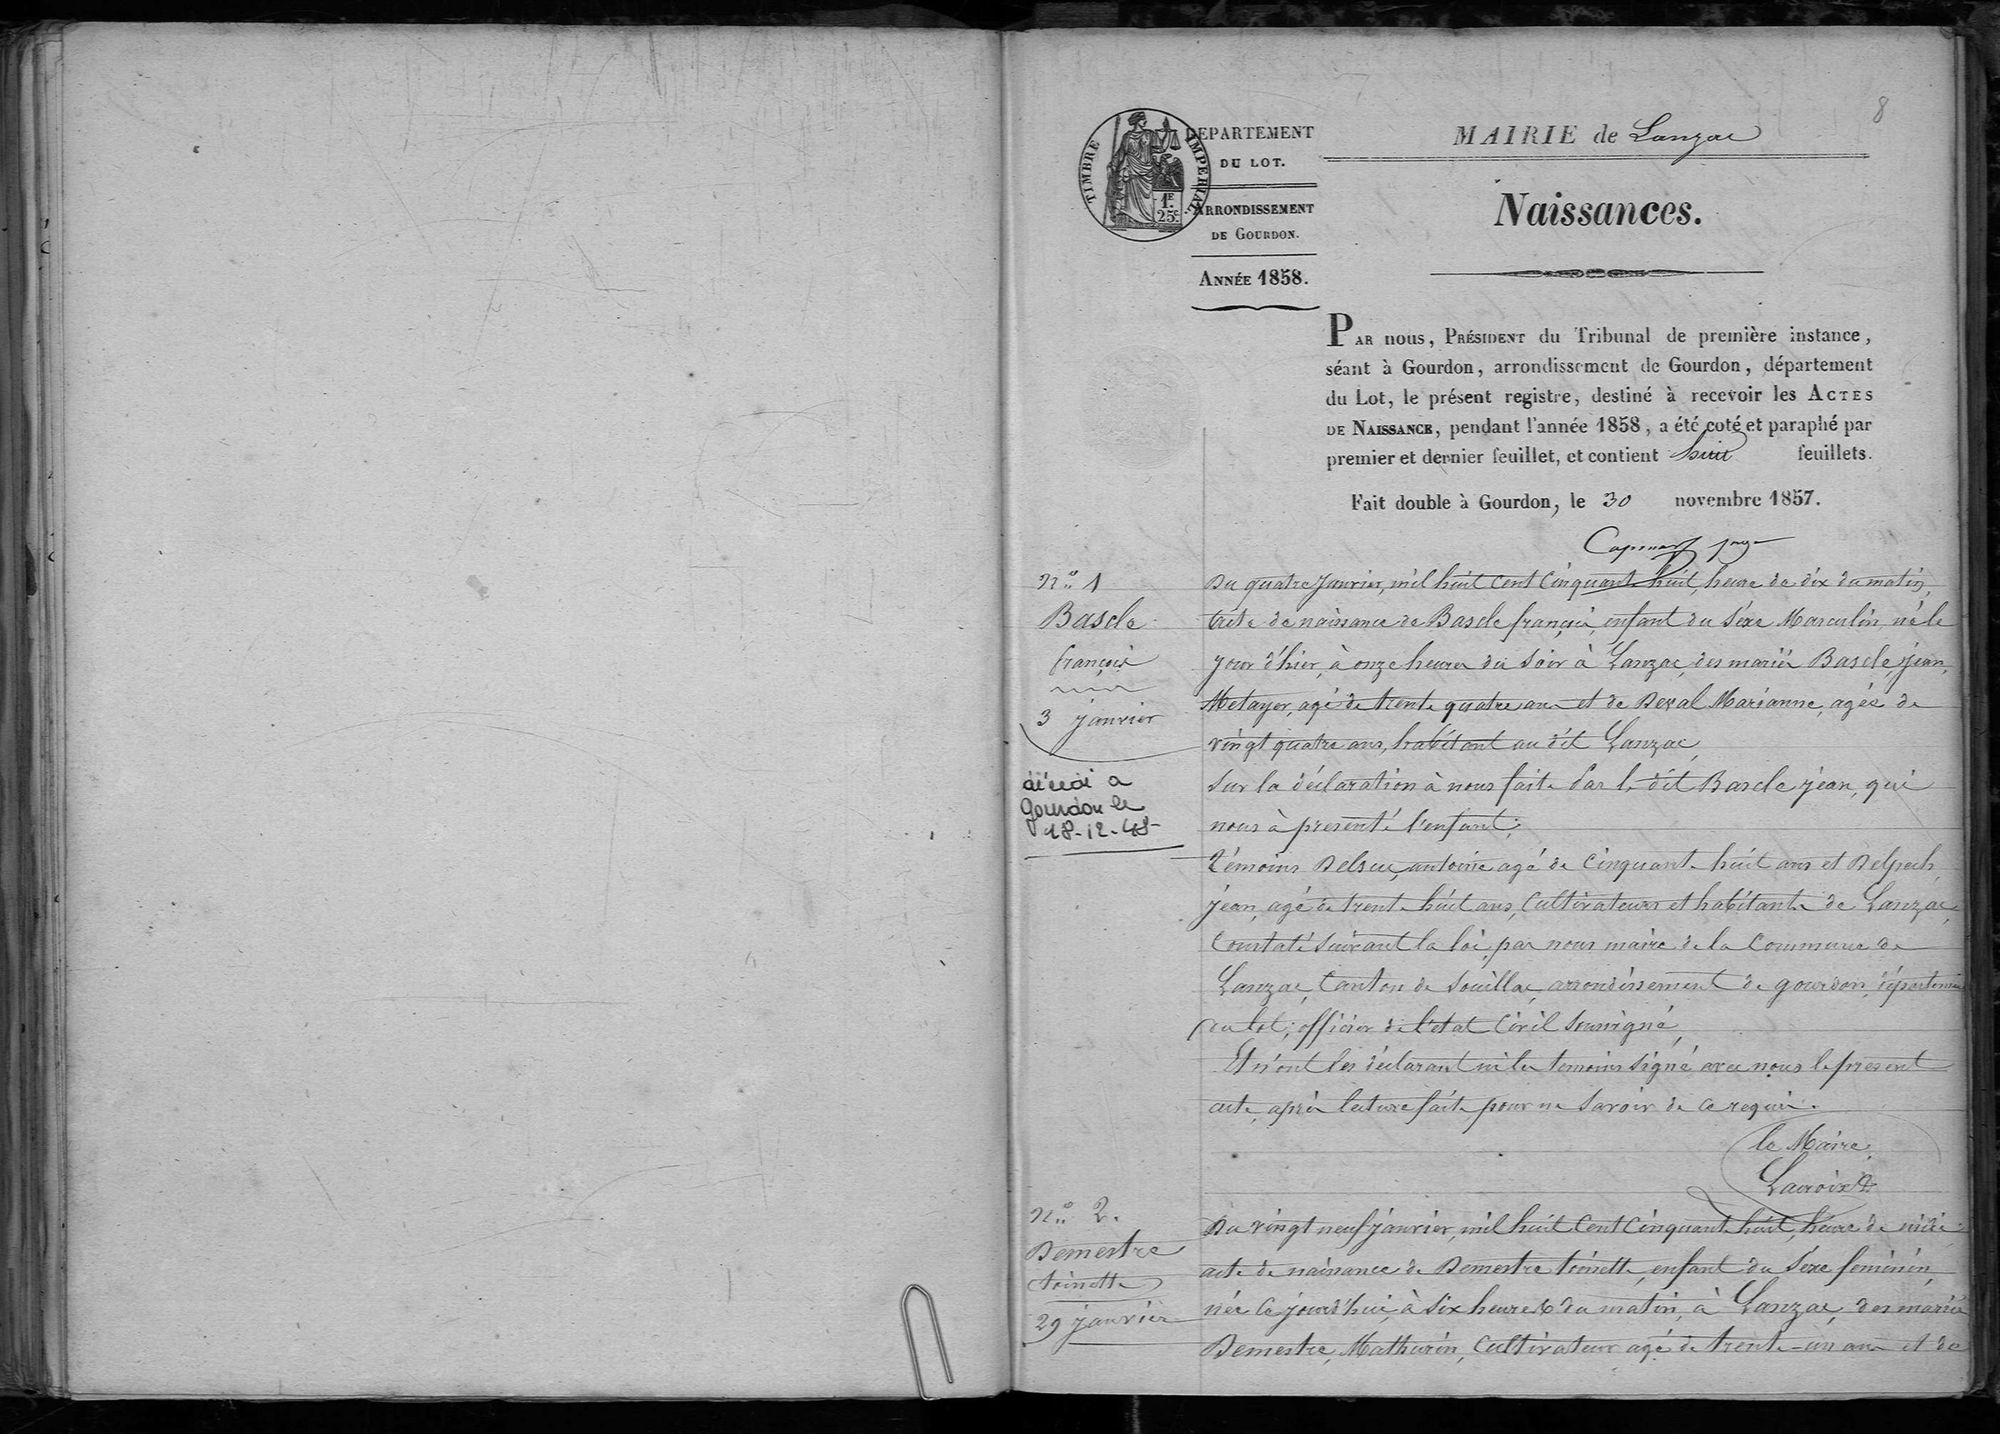 8
TIMBRE IMPERIAL
1F.
25c.
DEPARTEMENT
DU LOT.
ARRONDISSEMENT
DE GOURDON.
ANNÉE 1858.
MAIRIE de Lanzac
Naissances.
PAR nous, PRÉSIDENT du Tribunal de première instance,
séant à Gourdon, arrondissement de Gourdon, département
du Lot, le présent registre, destiné à recevoir les ACTES
DE NAISSANCE, pendant l'année 1858, a été coté et paraphé par
premier et dernier feuillet, et contient huit feuillets.
Fait double à Gourdon, le 30 novembre 1857.
No. 1
Bascle
françois
3 janvier
décédé a
Gourdon le
18-12-48
Du quatre janvier, mil huit cent cinquant huit, heure de dix du matin,
acte de naissance de Bascle françois, enfant du sexe Masculin, né le
jour d'hier, à onze heures du soir à Lanzac, des mariés Bascle, jean,
Metayer, agé de trente quatre ans et de Deval Marianne, agée de
vingt quatre ans, habitant au dit Lanzac,
sur la déclaration à nous faite par le dit Bascle jean, qui
nous à presenté l'enfant;
témoins antoine agé de cinquante huit ans et Delpech,
jean, agé de trente huit ans, cultivateurs et habitants de Lanzac,
Constaté suivant la loi, par nous maire de la Commune de
Lanzac, Canton de Souillac, arrondissement de gourdon, départemen
du lot; officier de l'etat Civil soussigné,
Et n'ont les déclarant ni les temoins signé avec nous le present
acte, après lecture faite pour ne savoir de ce requis.
le Maire,
Lacroix
No. 2.
Demestre
toinette
29 janvier
Du vingt neuf janvier, mil huit cent cinquant huit, heure de midi
acte de naissance de Demestre toinette, enfant du sexe feminin,
née ce jourd'hui, à six heures du matin, à Lanzac, des mariés
Demestre, Mathurin, Cultivateur agé de trente-un ans et de